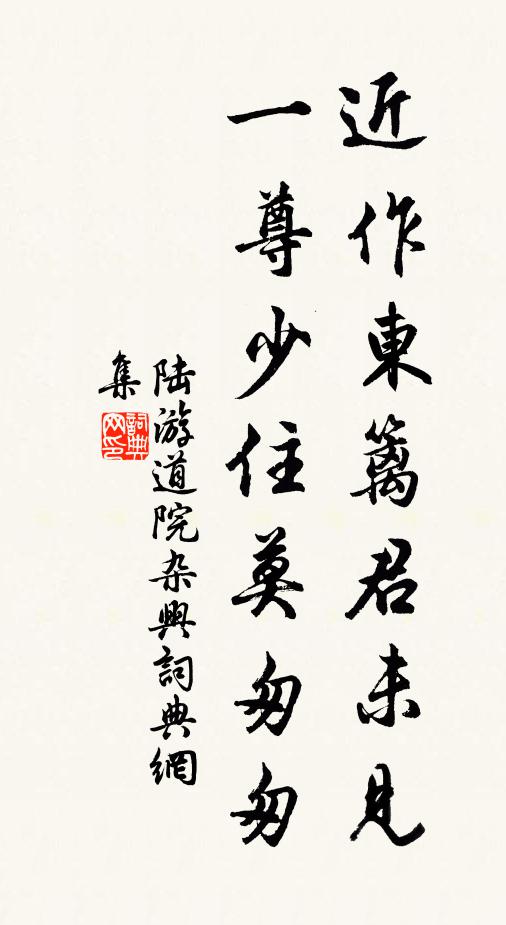 近作東籬君未見
一尊少住莫匆匆
陆游道院杂興詞典網
集
詞典
网印